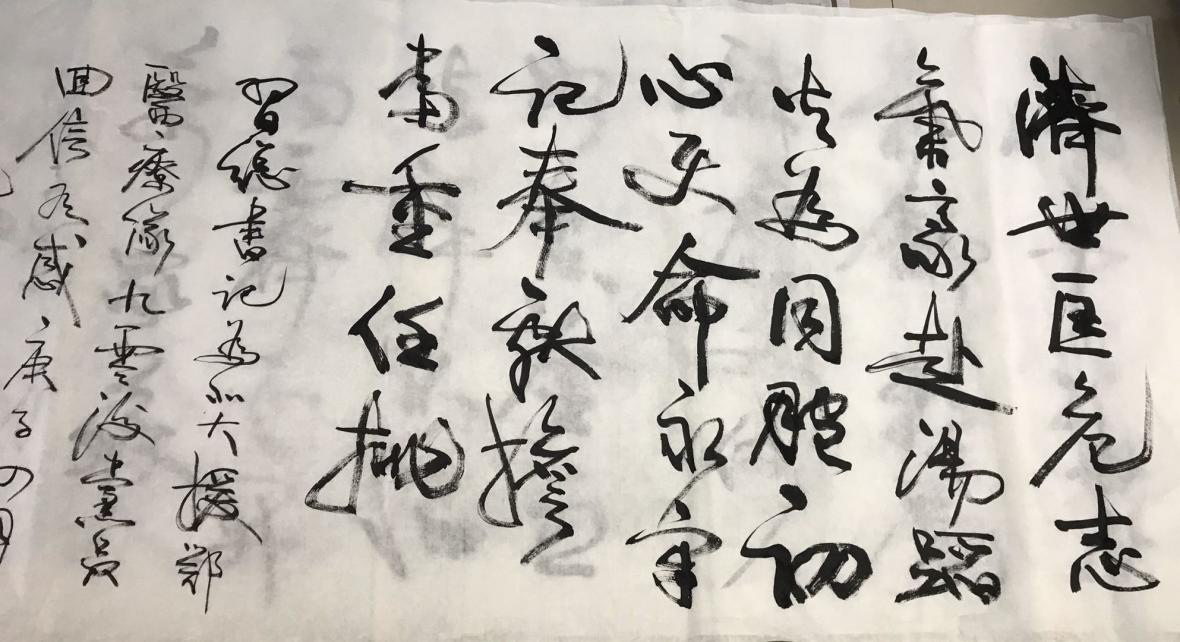 濟世匡危志
氣豪赴湯蹈
火為同胞初
心使命永牢
記奉獻擔
當重任挑
習總書記為北大援鄂
醫療隊九零後黨員
回信有感庚子四月